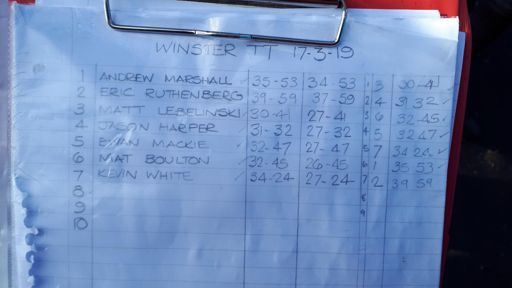 WINSTER TT 17-3-19
1 ANDREW MARSHALL ✓ 35-53 34-53 1 3 30-41 ✓
2 ERIC RUTHENBERG 39-59 37-59 2 4 31 32 ✓
3 MATT LEBELINSKI ✓ 30-41 27-41 3 6 32-45 ✓
4 JASON HARPER 31-32 27-32 4 5 32 47 ✓
5 BRIAN MACKIE ✓ 32-47 27-47 5 7 34 24 ✓
6 MAT BOULTON ✓ 32-45 26-45 6 1 35 53 ✓
7 KEVIN WHITE ✓ 34-24 27-24 7 2 39 59
8 8
9 9
10